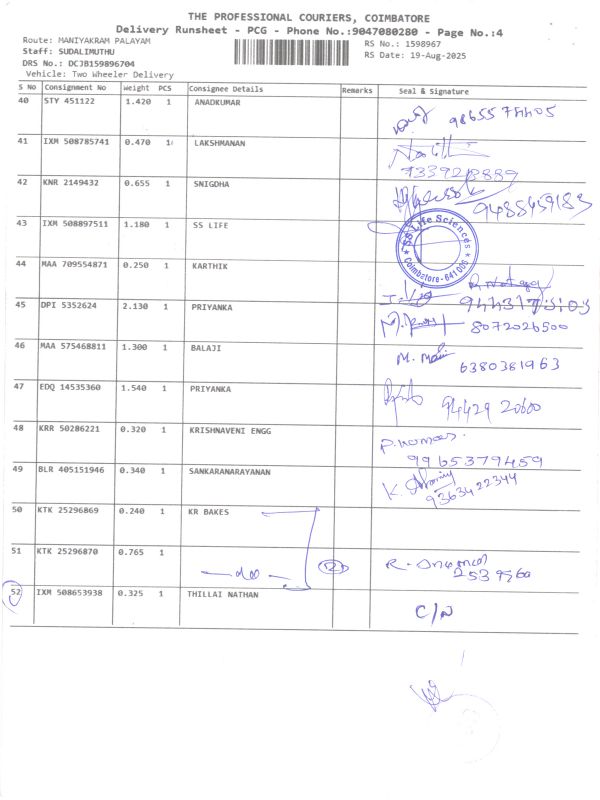 THE PROFESSIONAL COURIERS, COIMBATORE
Delivery Runsheet - PCG - Phone No.:9047080280 - Page No.:4
Route: MANIYAKRAM PALAYAM
Staff: SUDALIMUTHU
DRS No.: DCJB159896704
Vehicle: Two Wheeler Delivery
RS No.: 1598967
RS Date: 19-Aug-2025
S No Consignment No Weight PCS Consignee Details Remarks Seal & Signature
40 STY 451122 1.420 1 ANADKUMAR
41 IXM 508785741 0.470 1 LAKSHMANAN
42 KNR 2149432 0.655 1 SNIGDHA
9488459183
43 IXM 508897511 1.180 1 SS LIFE
SS Life Sciences
Coimbatore-641 006
44 MAA 709554871 0.250 1 KARTHIK
45 DPI 5352624 2.130 1 PRIYANKA
8072026500
46 MAA 575468811 1.300 1 BALAJI
6380381963
47 EDQ 14535360 1.540 1 PRIYANKA
94429 20600
48 KRR 50286221 0.320 1 KRISHNAVENI ENGG
P. Kumar
9965379459
49 BLR 405151946 0.340 1 SANKARANARAYANAN
9363422344
50 KTK 25296869 0.240 1 KR BAKES
51 KTK 25296870 0.765 1
—do— 2
52 IXM 508653938 0.325 1 THILLAI NATHAN
C/N